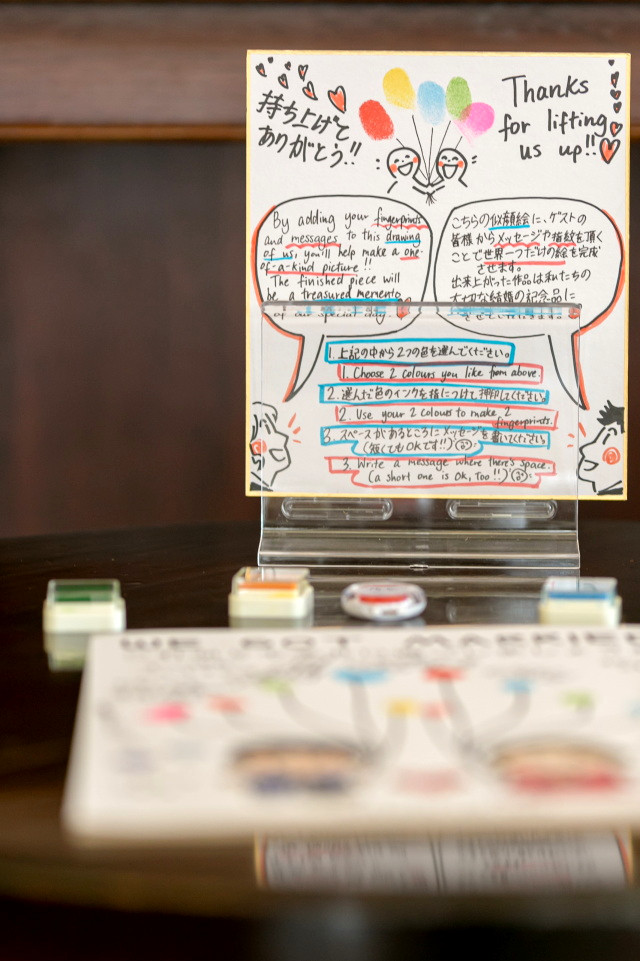 持ち上げて
ありがとう!!
Thanks
for lifting
us up!!
By adding your fingerprints
and messages to this drawing
of us, you'll help make a one-
of-a-kind picture!!
The finished piece will
be a treasured memento
of our special day.
こちらの似顔絵に、ゲストの
皆様からメッセージや指紋を頂く
ことで世界一つだけの絵を完成
させます。
出来上がった作品は私たちの
大切な結婚の記念品に
させていただきます。
1. 上記の中から2つの色を選んでください。
1. Choose 2 colours you like from above.
2. 選んだ色のインクを指につけて押印してください。
2. Use your 2 colours to make 2
fingerprints.
3. スペースがあるところにメッセージを書いてください。
(短くてもOKです!!)
3. Write a message where there's space.
(a short one is OK, Too!!)
WE GOT MARRIED